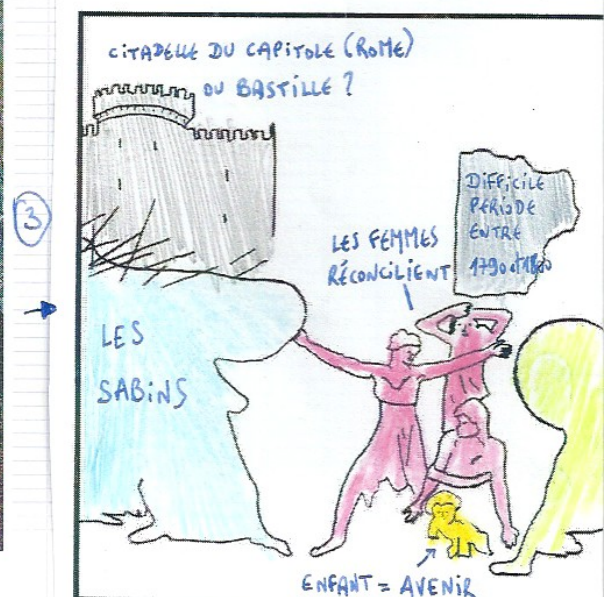 CITADELLE DU CAPITOLE (ROME)
OU BASTILLE ?
3
DIFFICILE
PERIODE
ENTRE
1790 et 1800
LES FEMMES
RÉCONCILIENT
LES
SABINS
ENFANT = AVENIR